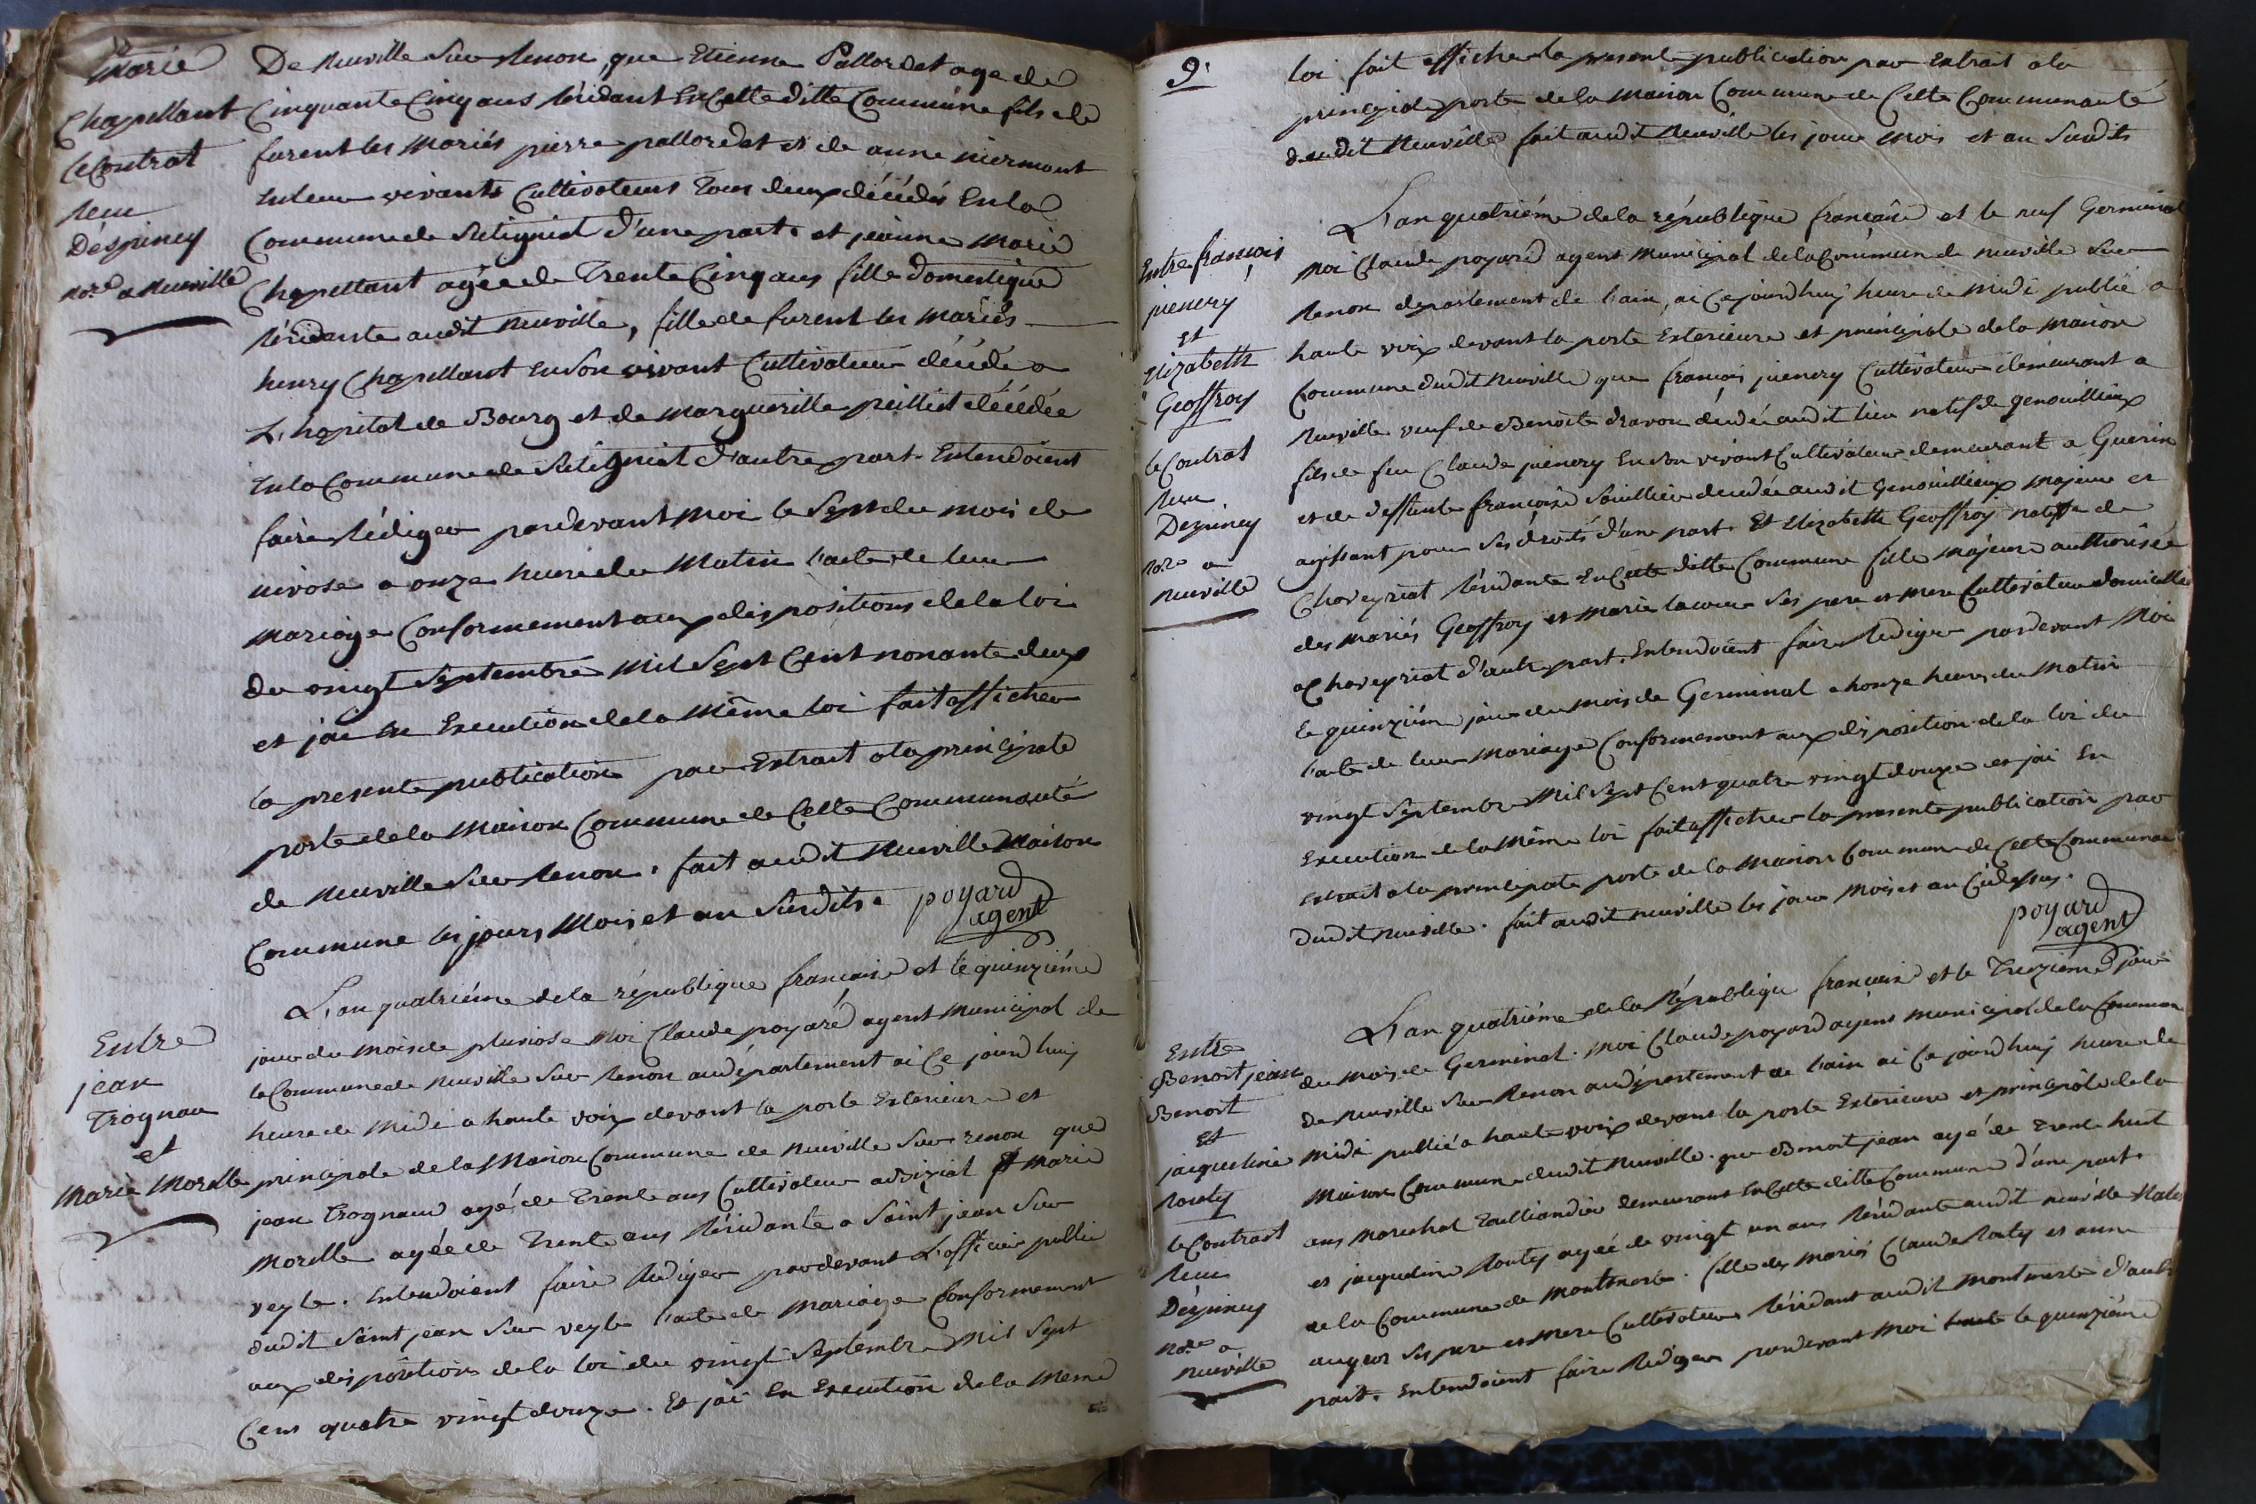 Marie
Chapellant
le Contrat
Reçu
Déspiney
no.re a Neuville
De Neuville sur Renon, que Etienne Pallordet age de
Cinquante Cinq ans résidant En Cette ditte Commune fils de
furent les mariés pierre pallordet et de anne niermont
En leur vivants Cultivateurs Tous deux décédés En la
Commune de Retignat d'une part. et jeanne Marie
Chapellant agée de Trente Cinq ans fille domestique
résidente audit Neuville, fille de furent les mariés
henry Chapellant En son vivant Cultivateur décédé a
L'hopital de Bourg et de marguerille peillet décédée
En la Commune de Retignat d'autre part. Entendoient
faire Rédiger pardevant moi le Sept du mois de
nivose a onze heure du Matin l'acte de leur
mariage Conformement aux dispositions de la loi
du vingt Septembre Mil Sept Cent nonante deux
et jai En Execution de la même loi fait afficher
la presente publication par Extrait a la principale
porte de la Maison Commune de Cette Communauté
de Neuville sur Renon. fait audit Neuville Maison
Commune les jours, Mois et an Susdits. poyard
agent
Entre
jean
Trognau
et
Marie Morelle
L'an quatriéme de la république francaise et le quinziéme
jour du mois de pluviose Moi Claude poyard agent municipal de
la Commune de Neuville sur Renon audépartement ai Ce jourd'huy
heure de Midi a haute voix devant la porte Exterieure et
principale de la Maison Commune de Neuville sur renon que
jean Trognaud agé de Trente ans Cultivateur et Marie
Morelle agée de Trente ans Résidante a Saint jean sur
veyle. Entendoient faire Rediger pardevant L'officier public
dudit Saint jean sur veyle l'acte de Mariage Conformement
aux dispositions de la loi du vingt Septembre Mil Sept
Cent quatre vingt douze. Et jai En Execution de la Meme
9.
loi fait afficher la presente publication par Extrait a la
principale porte de la Maison Commune de Cette Communauté
dudit Neuville fait audit Neuville les jour Mois et an Susdits
Entre francois
juenery
Et
Elizabeth
Geoffroy
le Contrat
Reçu
Despiney
no.re a
neuville
L'an quatriéme de la république francaise et le neuf Germinal
Moi Claude poyard agent Municipal de la Commune de neuville sur
Renon departement de l'ain, ai Ce jourd'huy heure de Midi publié a
haute voix devant la porte Exterieure et principale de la Maison
Commune dudit Neuville que francois juenery Cultivateur demeurant a
Neuville veuf de Benoite dravon décédée audit lieu natif de genouillieux
fils de feu Claude juenery En son vivant Cultivateur demeurant a Guerin
et de deffunte francoise Souillier decedée audit Genouillieux Majeur et
agissant pour Ses droits d'une part. Et Elizabeth Geoffroy native de
Chaveyriat Résidante En Cette ditte Commune fille Majeure authorisée
des mariés Geoffroy et Marie Ses pere et Mere Cultivateur domicilliés
a Chaveyriat d'autre part. Entendoient faire Rediger pardevant Moi
le quinziéme jour du mois de Germinal a honze heures du Matin
l'acte de leur Mariage Conformement aux disposition de la loi du
vingt Septembre Mil Sept Cent quatre vingt douze et jai En
Execution de la Même loi fait afficher la presente publication par
Extrait a la principale porte de la Maison Commune de Cette Communau
dudit Neuville. fait audit neuville les jour Mois et an Cidessus.
poyard
agent
Entre
Benoit jean
Benoit
Et
jacqueline
Routy
le Contract
Reçu
Déspiney
no.re a
neuville
L'an quatriéme de la République francaise et le Treziéme jour
du Mois de Germinal. Moi Claude poyard agent municipal de la Commune
de Neuville sur Renon audépartement de l'ain ai Ce jourd'huy heure de
Midi publié a haute voix devant la porte Exterieure et principale de la
Maison Commune dudit Neuville. que Benoit jean agé de Trente huit
ans Marechal Taillandier demeurant En Cette ditte Commune d'une part.
et jacqueline Routy agée de vingt un ans Résidante audit neuville Native
de la Commune de Montmerle. fille des mariés Claude Routy et anne
augeos Ses pere et Mere Cultivateurs Résidant audit Montmerle d'autre
part. Entendoient faire Rediger pardevant Moi le quinziéme